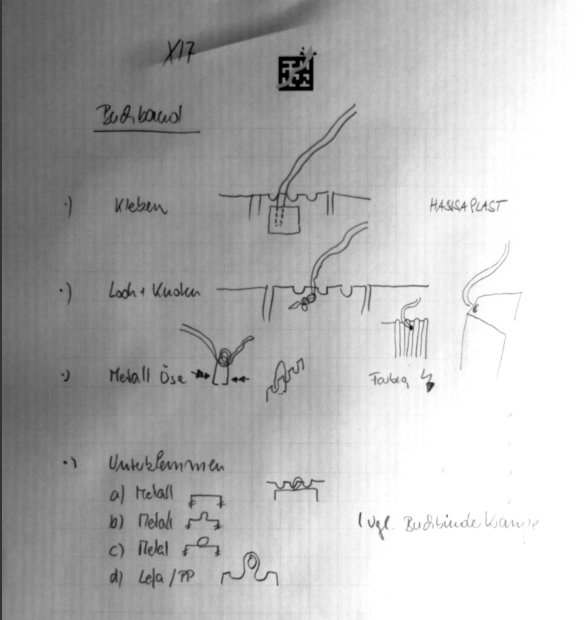 X17
Buchband
·) Kleben
HANSAPLAST
·) Loch + Knoten
·) Metall Öse
Farbig
·) Unterklemmen
a) Metall
b) Metall
c) Metal
(vgl. Buchbinde
d) Lefa/PP